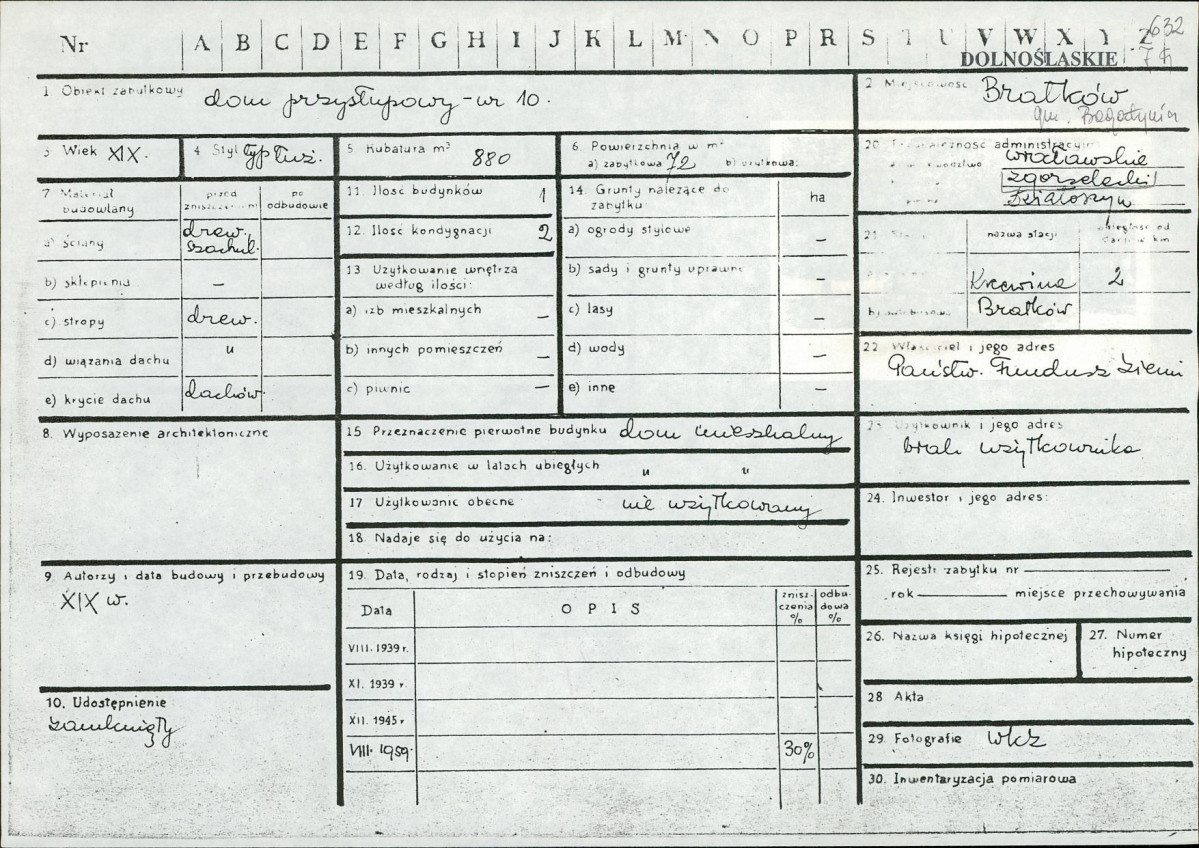 Nr A B C D E F G H I J K L M N O P R S T U V W X Y Z 632
DOLNOŚLĄSKIE
1. Obiekt zabytkowy dom przysłupowy - nr 10.
2. Miejscowość Bratków
gm. Bogatynia
3. Wiek XIX.
4. Styl typ łuż.
5. Kubatura m³ 880
6. Powierzchnia w m²
a) zabytkowa 72 b) użytkowa:
7. Materiał budowlany
przed zniszczeniem
po odbudowie
a) ściany drew. szachul.
b) sklepienia –
c) stropy drew.
d) wiązania dachu "
e) krycie dachu dachów.
8. Wyposażenie architektoniczne
9. Autorzy i data budowy i przebudowy
XIX w.
10. Udostępnienie
zamknięty
11. Ilość budynków 1
12. Ilość kondygnacji 2
13. Użytkowanie wnętrza
według ilości:
a) izb mieszkalnych –
b) innych pomieszczeń –
c) piwnic –
14. Grunty należące do
zabytku: ha
a) ogrody stylowe –
b) sady i grunty uprawne –
c) lasy –
d) wody –
e) inne –
15. Przeznaczenie pierwotne budynku dom mieszkalny
16. Użytkowanie w latach ubiegłych " "
17. Użytkowanie obecne nie użytkowany
18. Nadaje się do użycia na:
19. Data, rodzaj i stopień zniszczeń i odbudowy
Data OPIS znisz-czenia % odbu-dowa %
VIII. 1939 r.
XI. 1939 r.
XII. 1945 r
VIII. 1959. 30%
20. Przynależność administracyjna
wrocławskie
zgorzelecki
Działoszyn
21. nazwa stacji odległość od stacji w km
Krzewina 2
Bratków
22. Właściciel i jego adres
Państw. Fundusz Ziemi
23. Użytkownik i jego adres
brak użytkownika
24. Inwestor i jego adres:
25. Rejestr zabytku nr
rok miejsce przechowywania
26. Nazwa księgi hipotecznej
27. Numer
hipoteczny
28 Akta
29. Fotografie WKZ
30. Inwentaryzacja pomiarowa